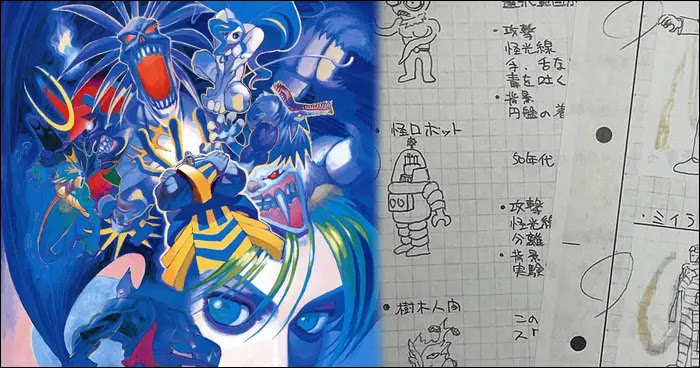 ・攻撃
怪光線
手、舌な
毒を吐く
・背景
円盤の着
・怪ロボット
50年代
・攻撃
怪光線
分離
・背景
実験
・樹木人間
この
・ミイラ